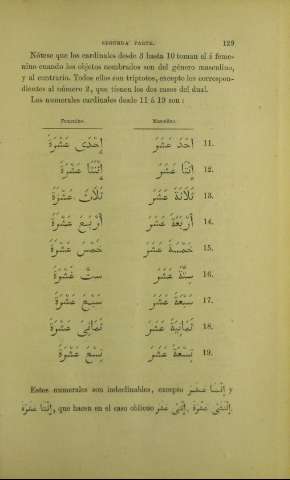 SEGUNDA PARTE. 129
Nótese que los cardinales desde 3 hasta 10 toman el ة femenino
nino cuando los objetos nombrados son del género masculino,
y al contrario. Todos ellos son triptotos, excepto los correspon-
dientes al número 2, que tienen los dos casos del dual.
Los numerales cardinales desde 11 á 19 son:
Femenino. Masculino.
إِحْدَى عَشْرَةَ أَحَدَ عَشَرَ 11.
إِثْنَتَا عَشْرَةَ إِثْنَا عَشَرَ 12.
ثَلَاثَ عَشْرَةَ ثَلَاثَةَ عَشَرَ 13.
أَرْبَعَ عَشْرَةَ أَرْبَعَةَ عَشَرَ 14.
خَمْسَ عَشْرَةَ خَمْسَةَ عَشَرَ 15.
سِتَّ عَشْرَةَ سِتَّةَ عَشَرَ 16.
سَبْعَ عَشْرَةَ سَبْعَةَ عَشَرَ 17.
ثَمَانِيَ عَشْرَةَ ثَمَانِيَةَ عَشَرَ 18.
تِسْعَ عَشْرَةَ تِسْعَةَ عَشَرَ 19.
Estos numerales son indeclinables, excepto إِثْنَا عَشَرَ y
إِثْنَتَا عَشْرَةَ, que hacen en el caso oblicuo إِثْنَيْ عَشَرَ, إِثْنَتَيْ عَشْرَةَ.